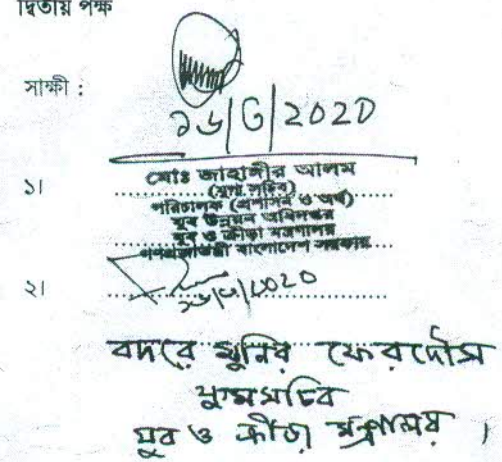 দ্বিতীয় পক্ষ
সাক্ষী :
১৬/৬/২০২০
১।
মোঃ জাহাঙ্গীর আলম
(যুগ্ম সচিব)
পরিচালক (প্রশাসন ও অর্থ)
যুব উন্নয়ন অধিদপ্তর
যুব ও ক্রীড়া মন্ত্রণালয়
গণপ্রজাতন্ত্রী বাংলাদেশ সরকার
২।
১৬/৬/২০২০
বদরে মুনির ফেরদৌস
যুগ্মসচিব
যুব ও ক্রীড়া মন্ত্রণালয়।